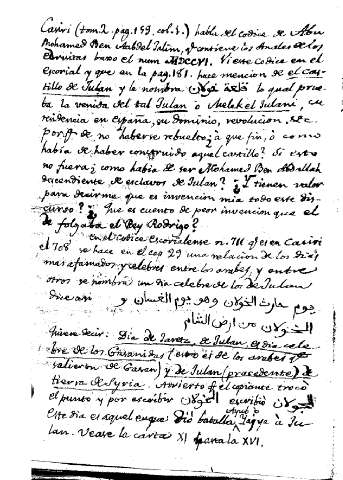 Casiri (tom. 2, pag. 159, col. 1.) habla del codice de Abu
Mohamed Ben Aabdel Jalim, q.e contiene los Anales de los
baxo el num MDCCVI. Viene codice en el
Escorial y que en la pag. 181. hace mencion de el Cas-
tillo de Julan y la nombra قلعة خولان lo qual prue-
ba la venida del tal Julan ò Melek el Julani, su
residencia en España, su dominio, revolucion, &c
de no haberse rebuelto ¿a que fin, ò como
habia de haber construido aquel castillo? Si esto
no fuera ¿como habia de ser Mohamed Ben Abdallah
descendiente de esclavos de Julan? ¿Y tienen valor
para decirme que es invencion mia todo este dis-
curso? ¿Pues es cuento de peor invencion que el
de folgaba el Rey Rodrigo?
en el codice Escorialense n. 711 q.e es en Casiri
el 708 se hace en el 29 una relacion de los dias
mas afamados y celebres entre los arabes, y entre
otros se nombra un dia celebre de los de Julan
dice asi يوم حارث الخولان وهو يوم الغسان و
الخولان من ارض الشام
Quiere decir: Dia de Jaretz de Julan, es dia cele-
bre de los Gasanidas (esto es de los arabes q.e
salieron de Gasan) y de Julan (precedente) de
tierra de Syria. Advierto q.e el copiante trocó
el punto y por escribir الخولان escribió
Este dia es aquel en que Dió batalla Ayub ò Yaqya à Ju-
lan. Vease la carta XI hasta la XVI.